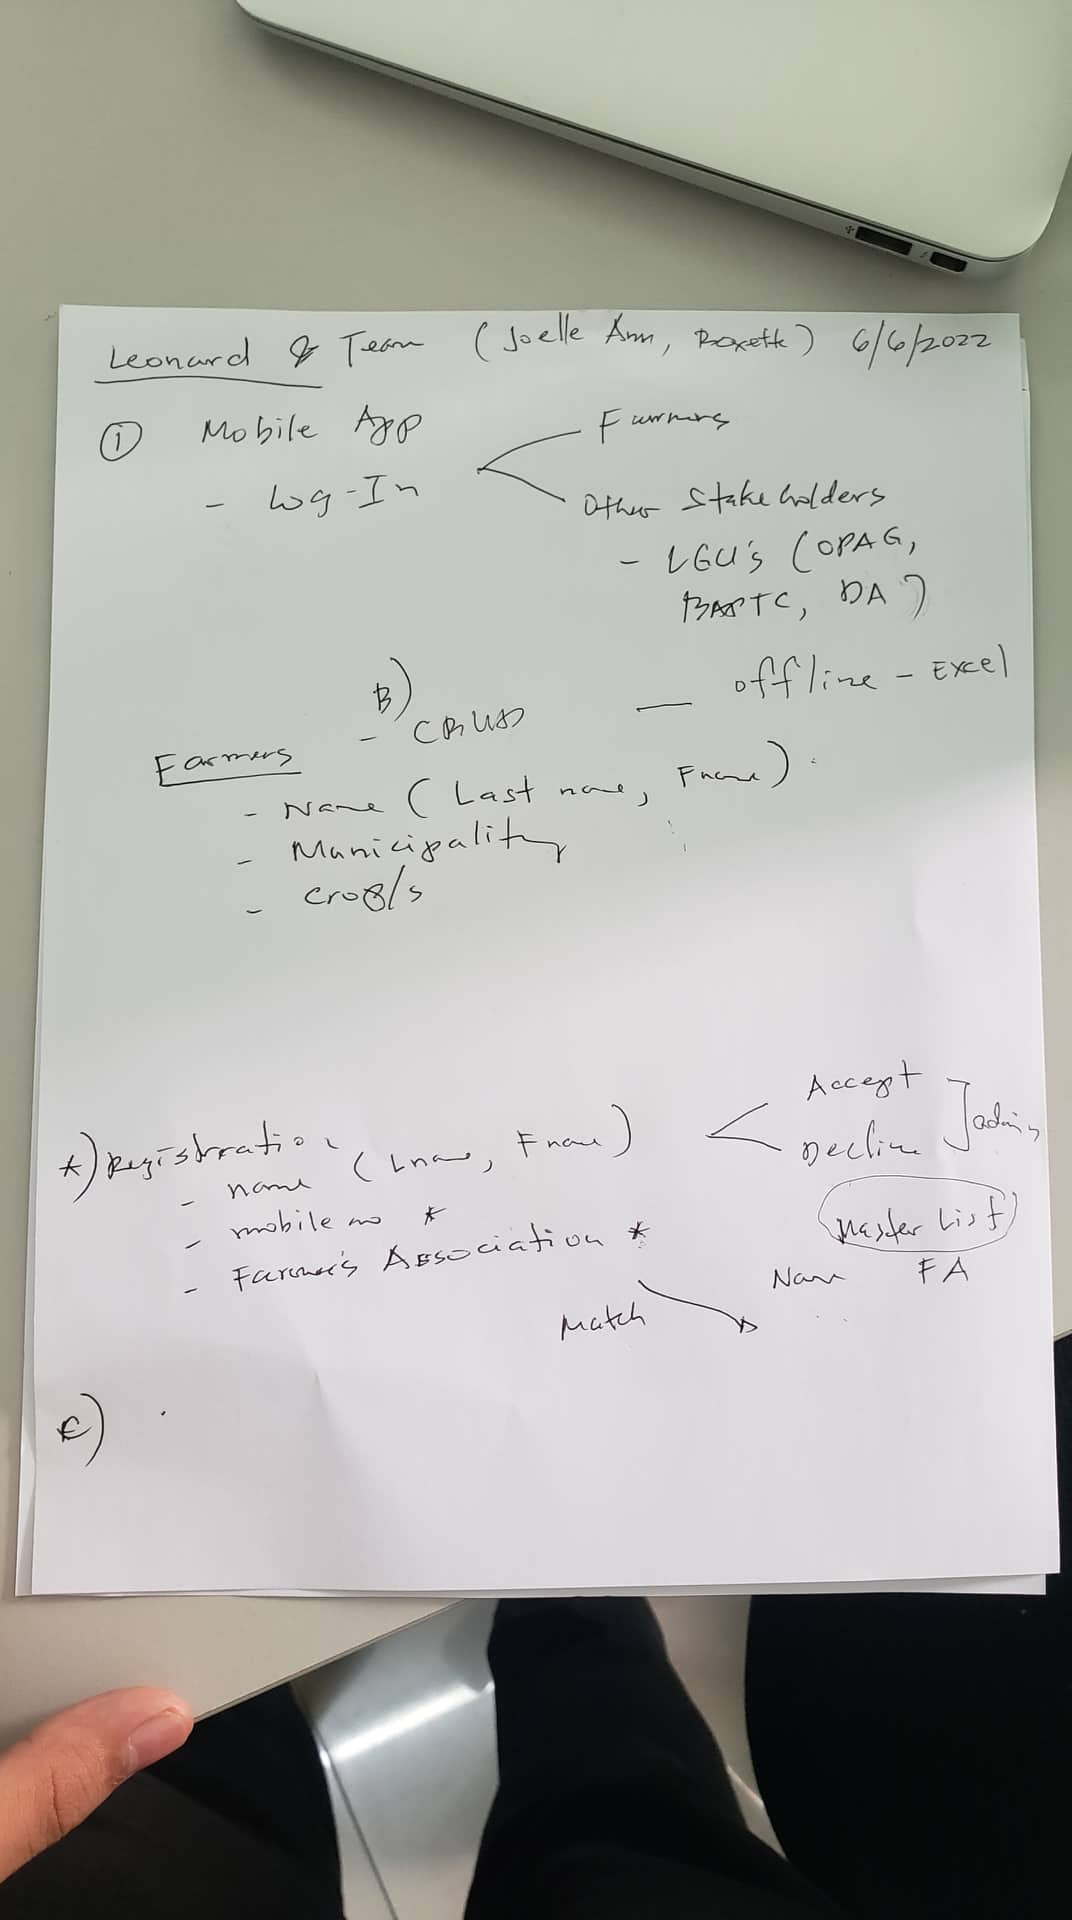 Leonard & Team (Joelle Ann, Roxette) 6/6/2022
① Mobile App
- Log-In
Farmers
Other Stakeholders
- LGU's (OPAG,
BAPTC, DA)
B)
- CRUD — offline - Excel
Farmers
- Name (Last name, Fname)
- Municipality
- Crop/s
*) Registration
- name (Lname, Fname)
- mobile no *
- Farmer's Association *
Accept
Decline ] admin
Master List
Name FA
Match
C)